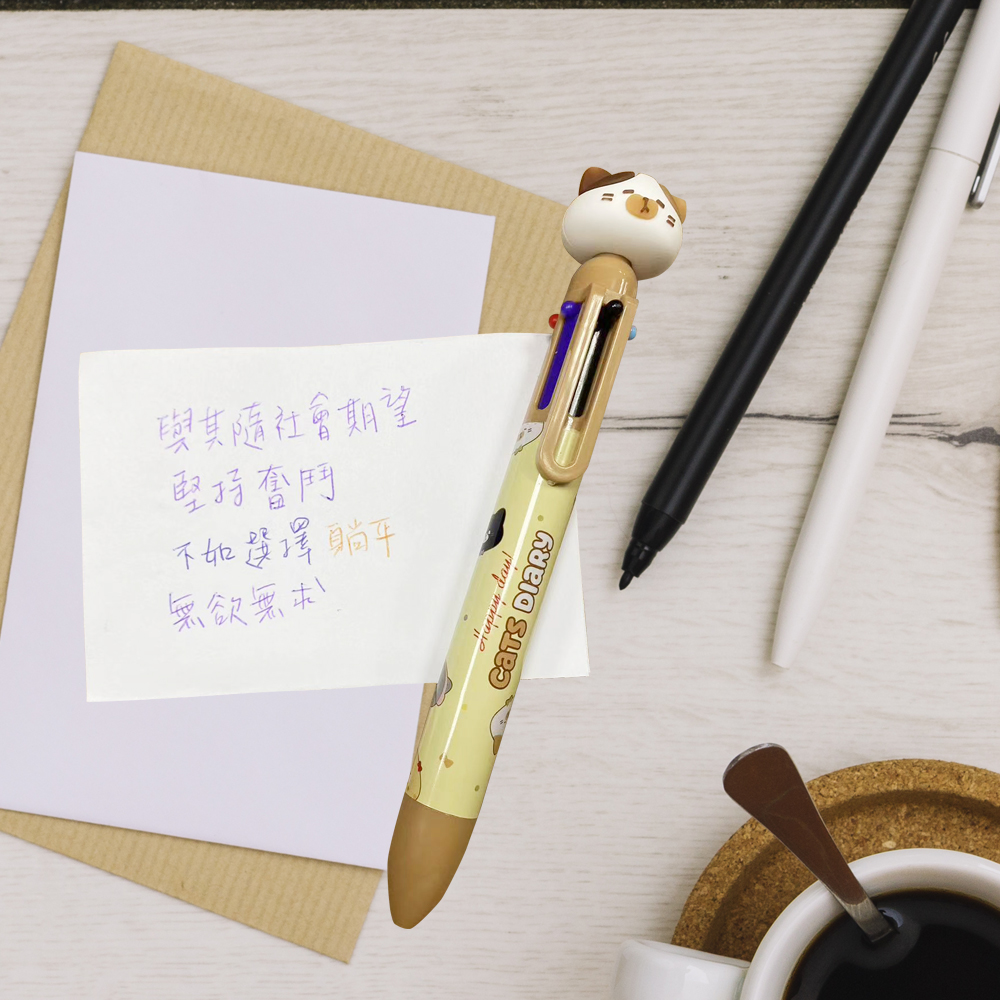 與其隨社會期望
堅持奮鬥
不如選擇躺平
無欲無求
Happy day!
CATS DIARY